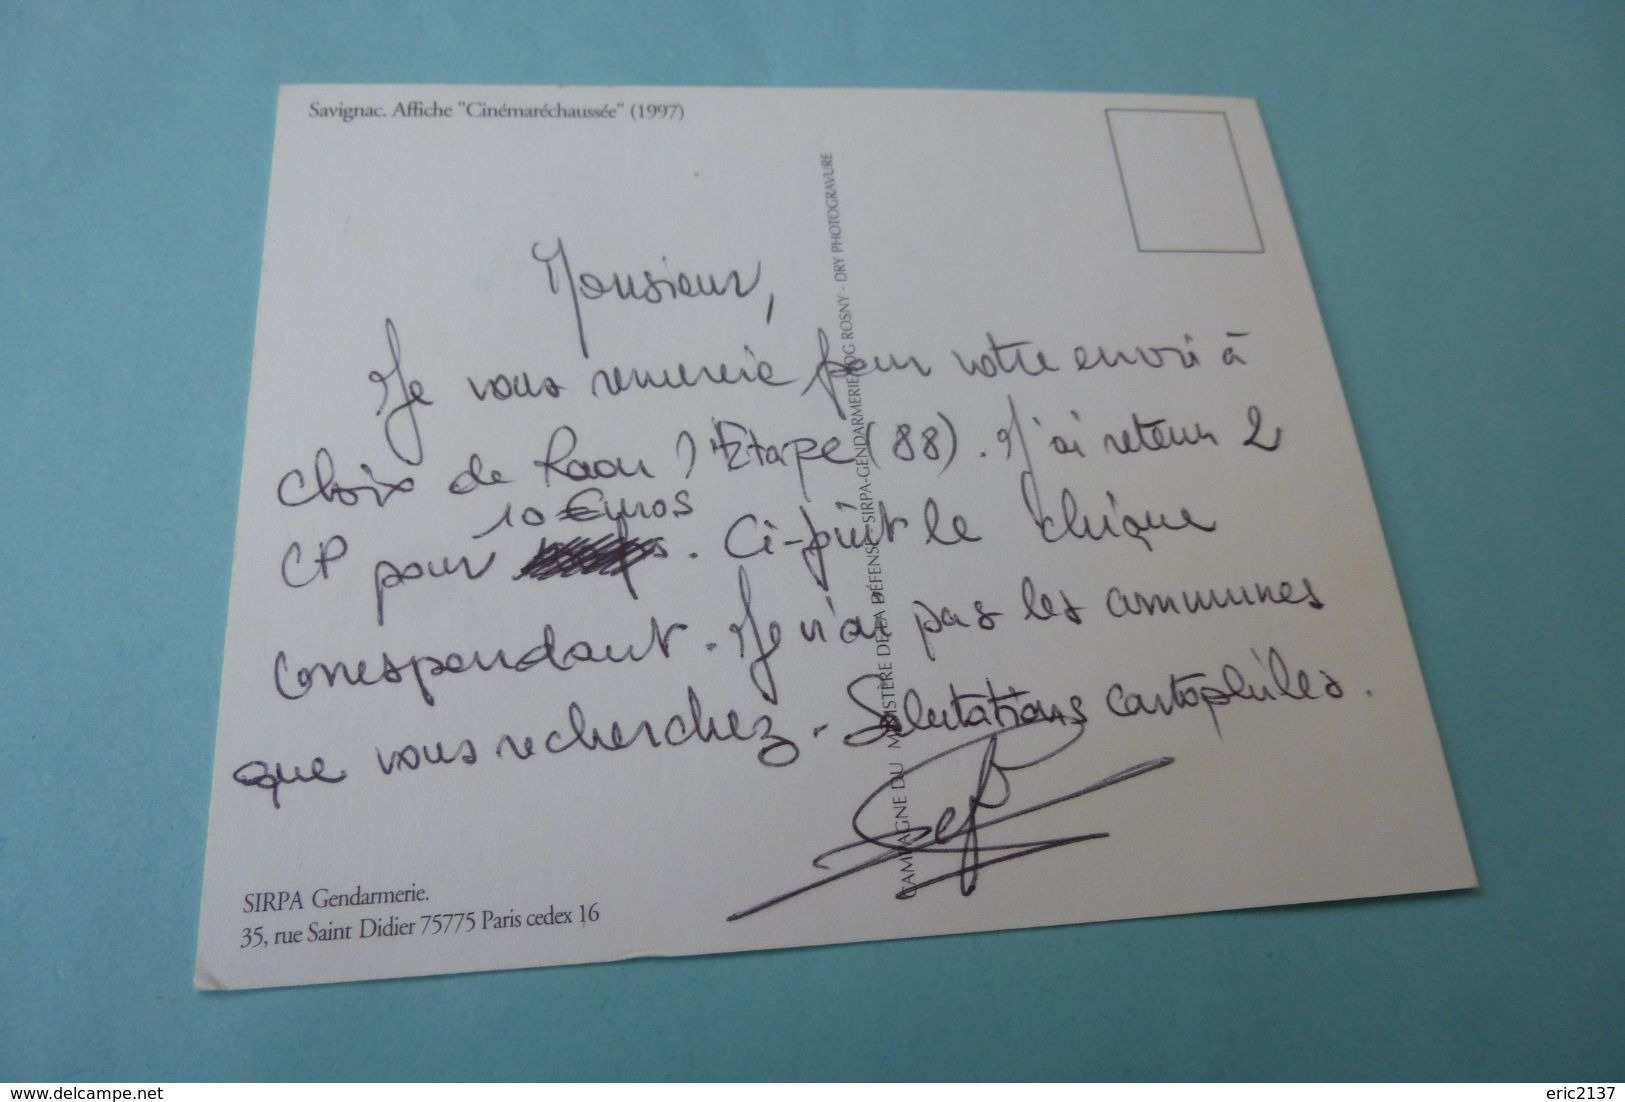 Savignac. Affiche "Cinémaréchaussée" (1997)
Monsieur,
Je vous remercie pour votre envoi à
choix de Raon l'Etape (88). J'ai retenu 2
10 Euros
CP pour . Ci-joint le chèque
correspondant. Je n'ai pas les communes
que vous recherchez. Salutations cartophiles.
SIRPA Gendarmerie.
35, rue Saint Didier 75775 Paris cedex 16
CAMPAGNE DU MINISTÈRE DE LA DÉFENSE - SIRPA-GENDARMERIE - OG ROSNY - DRY PHOTOGRAVURE
www.delcampe.net
eric2137